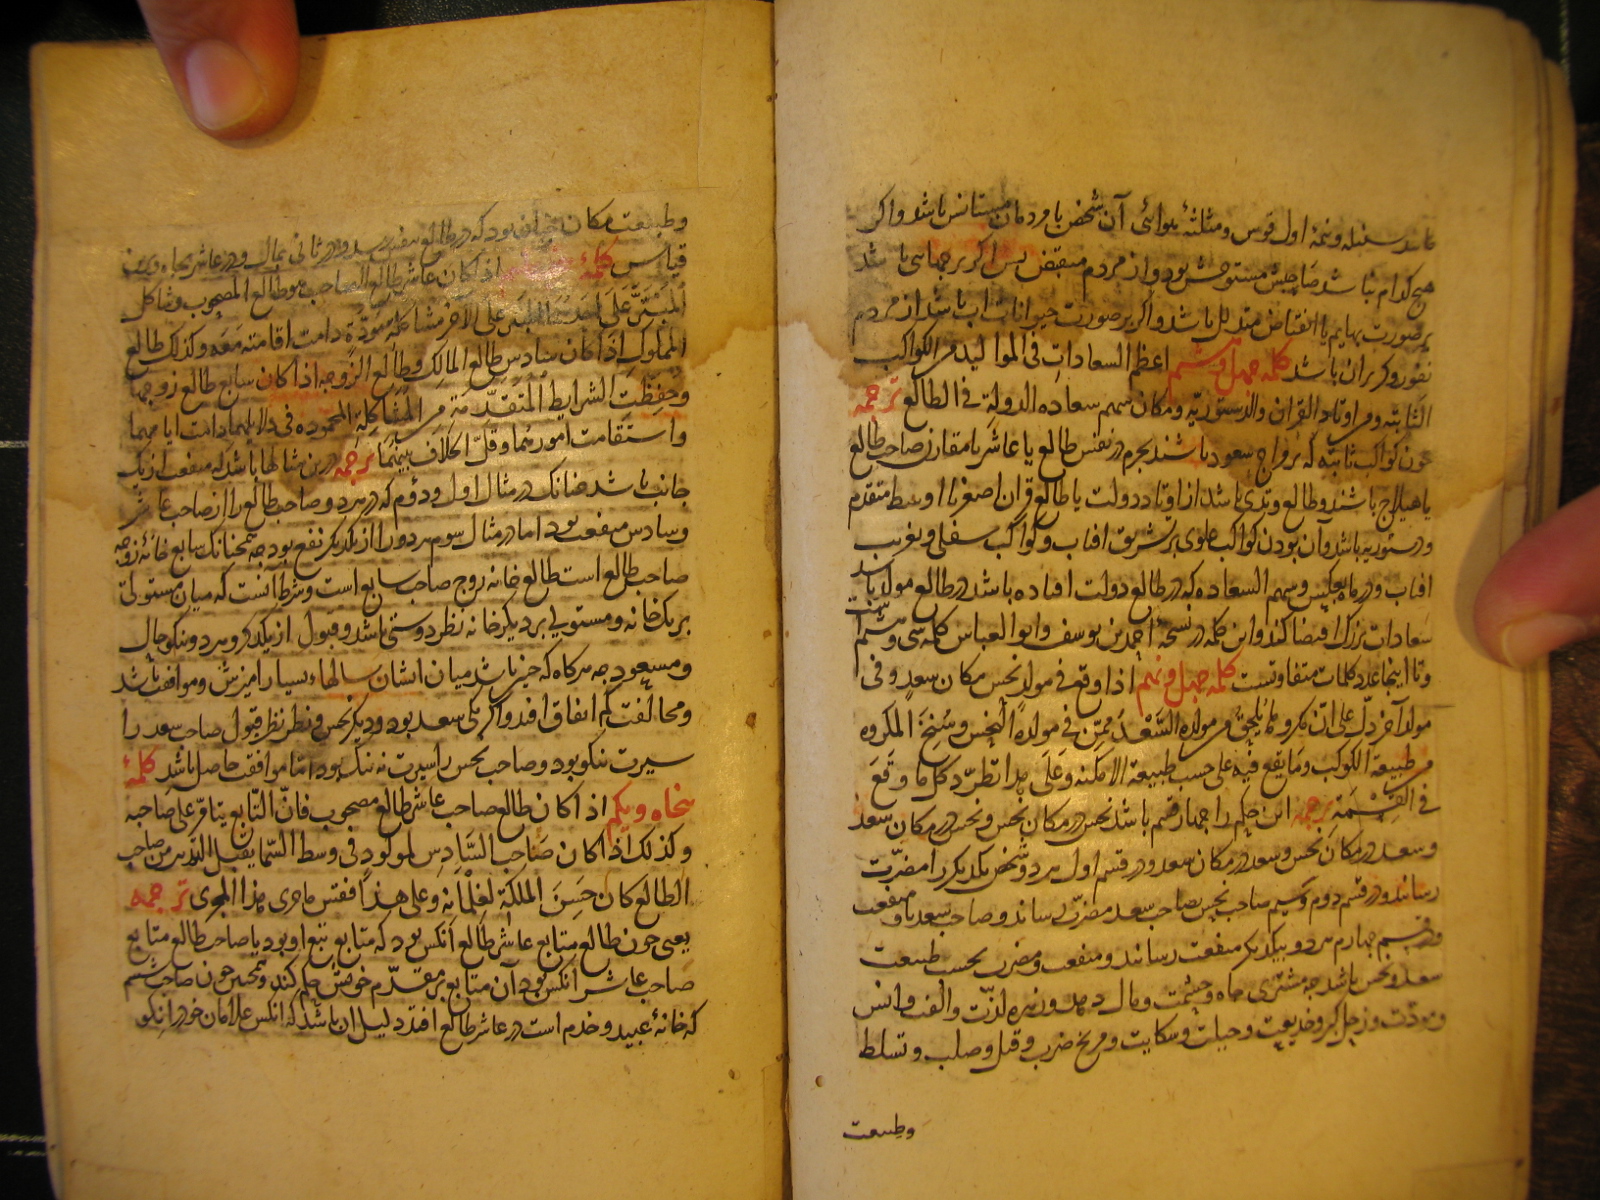 باشد سنبله و نیمهٔ اول قوس و مثلثهٔ هوائی آن شخص با مردمان مستانس باشد و اگر
هیچ کدام نباشد صاحبش مستوحش بود و از مردم منقبض پس اگر برجهاسی باشد
بر صورت بهایم با انقباض متدلل باشد و اگر بر صورت حیوانات اب باشد از مردم
نفور و کریزان باشد کلمه چهل و هشتم اعظم السعادات فی الموالید من الکواکب
الثابته و من اوتاد القران والدستوریه و مکان سهم سعاده الدولة فی الطالع ترجمه
چون کواکب ثابته که بر مزاج سعود باشند بجرم در نفس طالع یا عاشر با مقارن صاحب طالع
یا هیلاج باشند و طالع وتدی باشد از اوتاد دولت یا طالع قران اصغر یا اوسط متقدم
و دستوریه باشد و آن بودن کواکب علوی بر تشریق افتاب و کواکب سفلی و تغریب
افتاب و در ماه بعکس و سهم السعاده که در طالع دولت افتاده باشد در طالع مولد باشد
سعادات بزرک اقتضا کند و این کلمه در نسخهٔ احمد بن یوسف و ابو العباس کلمه سی و هشتم است
و تا اینجا عدد کلمات متفاوتست کلمه چهل و نهم اذا وقع فی مولد نحس مکان سعد و فی
مولد آخر دل علی ان مکروها یلحق من مولده السعد ممن فی مولده النحس و سنخ المکروه
من طبیعة الکوکب و ما یقع فیه علی حسب طبیعة الامکنه و علی هذا تطرد کل ما وقع
فی القسمة ترجمه این حکم را چهار قسم باشد نحس در مکان نحس و نحس در مکان سعد
و سعد در مکان نحس و سعد در مکان سعد و در قسم اول هر دو شخص یکدیکر را مضرت
رسانند و در قسم دوم و سیم صاحب نحس بصاحب سعد مضرت رساند و صاحب سعد باو منفعت
و در قسم چهارم هر دو بیکدیکر منفعت رسانند و منفعت و مضرت بحسب طبیعت
سعد و نحس باشد چه مشتری جاه و حشمت و مال دهد و زهره لذت و الفت و انس
و مودت و زحل مکر و خدیعت و حیلت و سکایت و مریخ ضرب و قتل و صلب و تسلط
وطبیعت
وطبیعت مکان چنان بود که در طالع بنفس رسد و در ثانی بمال و در عاشر بجاه و برین
قیاس کلمهٔ اذا کان عاشر طالع الصاحب هو طالع المصحوب و شاکل
المبتز علی احدهما المبتز علی الآخر مشاکلة مودة دامت اقامته معه و کذلک طالع
المملوک اذا کان سادس طالع المالک و طالع الزوجه اذا کان سابع طالع زوجها
و حفظت الشرایط المتقدمة من المشاکلة المحموده فی دلایلهما دامت ایامهما
و استقامت امورهما و قل الخلاف بینهما ترجمه درین مثالها باشد که منفعت از یک
جانب باشد چنانک در مثال اول و دوم که در هر دو صاحب طالع را از صاحب عاشر
و سادس منفعت بود اما در مثال سوم هر دو را از یکدیکر نفع بود چه همچنانک سابع خانهٔ زوجه
صاحب طالع است طالع خانه زوج صاحب سابع است و شرط آنست که میان مستولی
بر یک خانه و مستولی بر دیکر خانه نظر دوستی باشد و قبول از یکدیکر و هر دو نیکو حال
و مسعود چه هرکاه که چنین باشد میان ایشان سالهاء بسیار امیزش و موافقت باشد
و مخالفت کم اتفاق افتد و اکر یکی سعد بود و دیکر نحس و نظر نظر قبول صاحب سعد را
سیرت نیکو بود و صاحب نحس را سیرت نه نیک بود اما موافقت حاصل باشد کلمهٔ
پنجاه و یکم اذا کان طالع صاحب عاشر طالع مصحوب فان التابع یتامر علی صاحبه
و کذلک اذا کان صاحب السادس لمولود فی وسط السما یقبل التدبیر من صاحب
الطالع کان حسن الملکة لغلمانه و علی هذا فقس ما جری هذا المجری ترجمه
یعنی چون طالع متابع عاشر طالع آنکس بود که متابع تبع او بود یا صاحب طالع متابع
صاحب عاشر آنکس بود آن متابع بر مقدم خویش حکم کند و همچنین چون صاحب ششم
که خانهٔ عبید و خدم است در عاشر طالع افتد دلیل ان باشد که انکس غلامان خود را نیکو